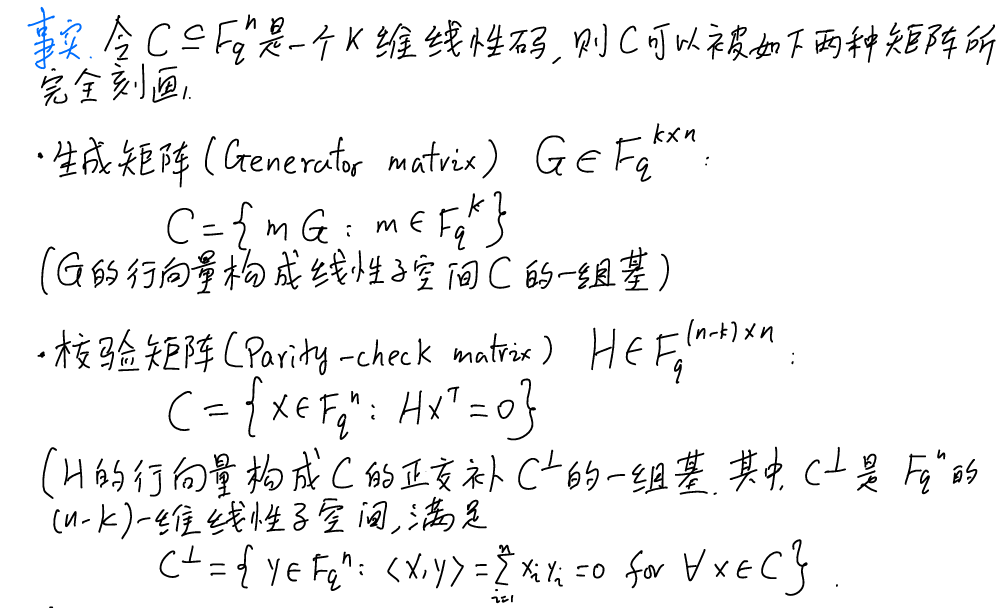 事实. 令 C ⊆ F_q^n 是一个 K 维线性码, 则 C 可以被如下两种矩阵所
完全刻画.
· 生成矩阵 (Generator matrix) G ∈ F_q^{k×n} :
C = { m G : m ∈ F_q^k }
(G 的行向量构成线性子空间 C 的一组基)
· 校验矩阵 (Parity-check matrix) H ∈ F_q^{(n-k)×n} :
C = { x ∈ F_q^n : Hx^T = 0 }
(H 的行向量构成 C 的正交补 C^⊥ 的一组基. 其中, C^⊥ 是 F_q^n 的
(n-k)-维线性子空间, 满足
C^⊥ = { y ∈ F_q^n : <x,y> = ∑_{i=1}^n x_i y_i = 0 for ∀ x ∈ C } .